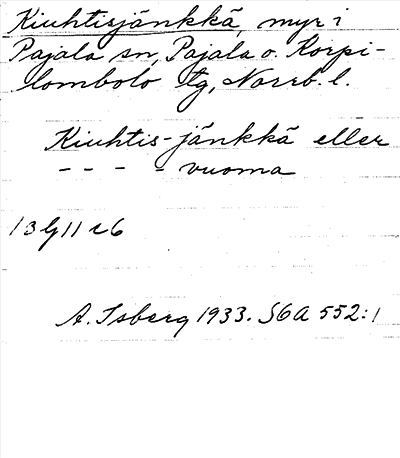 Kiuhtisjänkkä, myr i
Pajala sn, Pajala o. Korpi-
lombolo tg, Norrb. l.
Kiuhtis-jänkkä eller
- - - - vuoma
13 G 11 c6
A. Isberg 1933. S6A 552:1